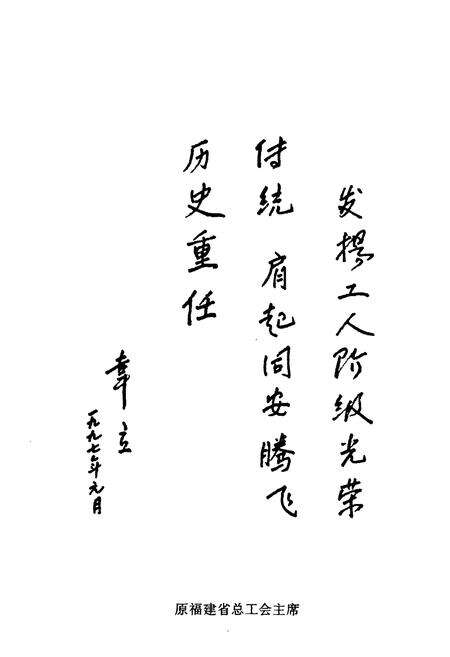 发揚工人阶级光荣
传统 肩起同安腾飞
历史重任
韋立
一九九七年元月
原福建省总工会主席